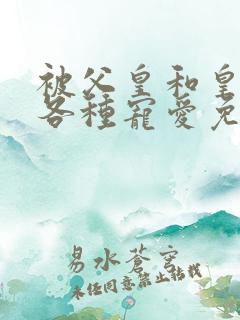 被父皇和皇
各種寵愛免
易水蒼穹
未經同意禁止轉載